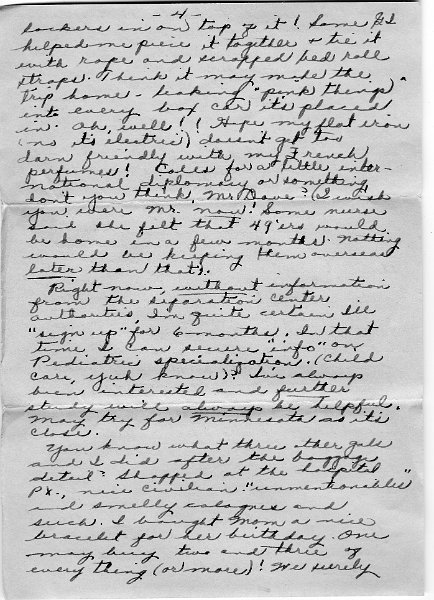 -4-
lockers in on top of it! Some G.I.
helped me piece it together & tie it
with rope and scrapped bed roll
straps. Think it may make the
trip home - leaking "pink things"
into every box car its placed
in. Oh, well!! Hope my flat iron
(no its electric) doesn't get too
darn friendly with my French
perfumes! Calls for a little inter-
national diplomacy or something
don't you think, Mr. Dave? (I wish
you were Mr. now! Some nurse
said she felt that 49'ers would
be home in a few months. Nothing
would be keeping them overseas
later than that).
Right now, without information
from the separation center
authorities, I'm quite certain I'll
"sign up" for 6-months. In that
time I can secure "info" on
Pediatric specialization. (Child
care, yuh know)? I've always
been interested and further
study will always be helpful.
May try for Minnesota as its
close.
You know what three other gals
and I did after the baggage
detail? Shopped at the hospital
PX., nice civilian "unmentionables"
and smelly colognes and
such. I bought Mom a nice
bracelet for her birthday. One
may buy two and three of
everything (or more)! We surely